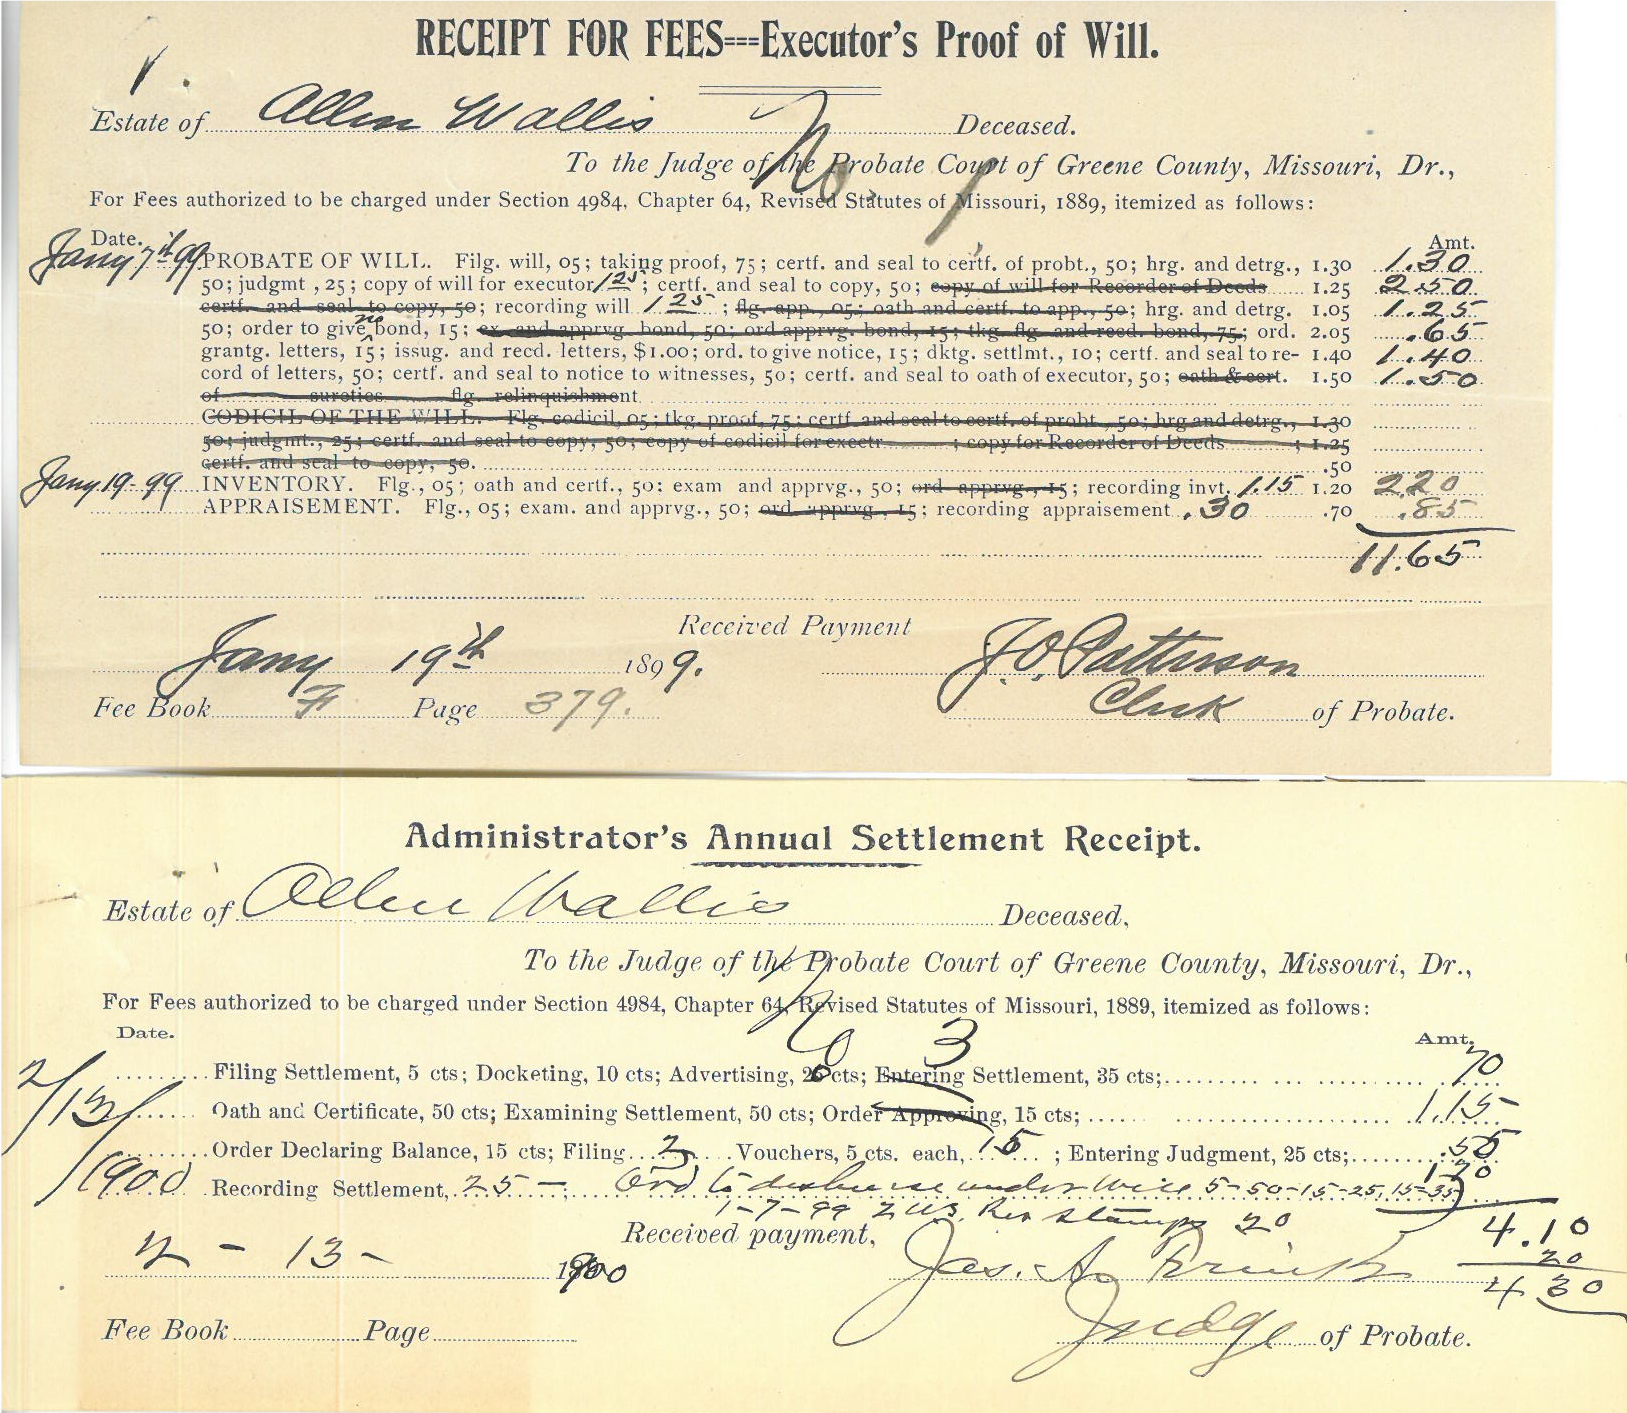 RECEIPT FOR FEES===Executor's Proof of Will.
Estate of Allen Wallis Deceased.
No. 1
To the Judge of the Probate Court of Greene County, Missouri, Dr.,
For Fees authorized to be charged under Section 4984, Chapter 64, Revised Statutes of Missouri, 1889, itemized as follows:
Date. Amt.
Jany 7th 99 PROBATE OF WILL. Filg. will, 05; taking proof, 75; certf. and seal to certf. of probt., 50; hrg. and detrg., 1.30 1.30
50; judgmt , 25; copy of will for executor 1 25; certf. and seal to copy, 50; copy of will for Recorder of Deeds 1.25 2.50
certf. and seal to copy, 50; recording will 1 25; flg. app., 05; oath and certf. to app., 50; hrg. and detrg. 1.05 1.25
50; order to give no bond, 15; ex. and apprvg. bond, 50; ord. apprvg. bond, 15; tkg. flg. and recd. bond, 75; ord. 2.05 .65
grantg. letters, 15; issug. and recd. letters, $1.00; ord. to give notice, 15; dktg. settlmt., 10; certf. and seal to re- 1.40 1.40
cord of letters, 50; certf. and seal to notice to witnesses, 50; certf. and seal to oath of executor, 50; oath & cert. 1.50 1.50
of sureties flg. relinquishment
CODICIL OF THE WILL. Flg. codicil, 05; tkg. proof, 75; certf. and seal to certf. of probt., 50; hrg and detrg., 1.30
50; judgmt., 25; certf. and seal to copy, 50; copy of codicil for exectr ; copy for Recorder of Deeds ; 1.25
certf. and seal to copy, 50. .50
Jany. 19-99 INVENTORY. Flg., 05; oath and certf., 50: exam and apprvg., 50; ord. apprvg., 15; recording invt. 1.15 1.20 2.20
APPRAISEMENT. Flg., 05; exam. and apprvg., 50; ord. apprvg., 15; recording appraisement .30 .70 .85
11.65
Received Payment
Jany 19th 1899. J.O. Patterson
Fee Book F Page 379. Clerk of Probate.
Administrator's Annual Settlement Receipt.
Estate of Allen Wallis Deceased,
To the Judge of the Probate Court of Greene County, Missouri, Dr.,
For Fees authorized to be charged under Section 4984, Chapter 64, Revised Statutes of Missouri, 1889, itemized as follows:
No 3
Date. Amt.
2/13/1900 Filing Settlement, 5 cts; Docketing, 10 cts; Advertising, 20 cts; Entering Settlement, 35 cts; 70
Oath and Certificate, 50 cts; Examining Settlement, 50 cts; Order Approving, 15 cts; 1.15
Order Declaring Balance, 15 cts; Filing 3 Vouchers, 5 cts. each, 15 ; Entering Judgment, 25 cts; .55
Recording Settlement, 25 - Ord to disburse under Will 5-50-15-25, 15-35 1 70
1-7-99 2 U.S. Rev Stamps 20
Received payment, 4.10
20
2-13- 1900 Jas. A. 4 30
Fee Book Page Judge of Probate.